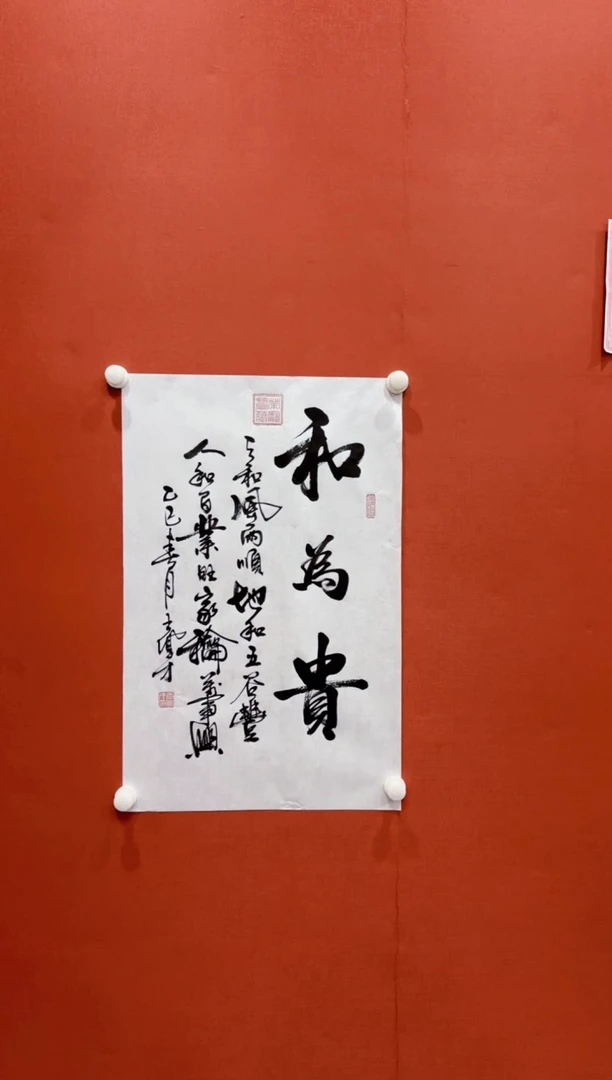 和為貴
天和風雨順地和五谷豐
人和百業旺家龢萬事興
乙巳春月